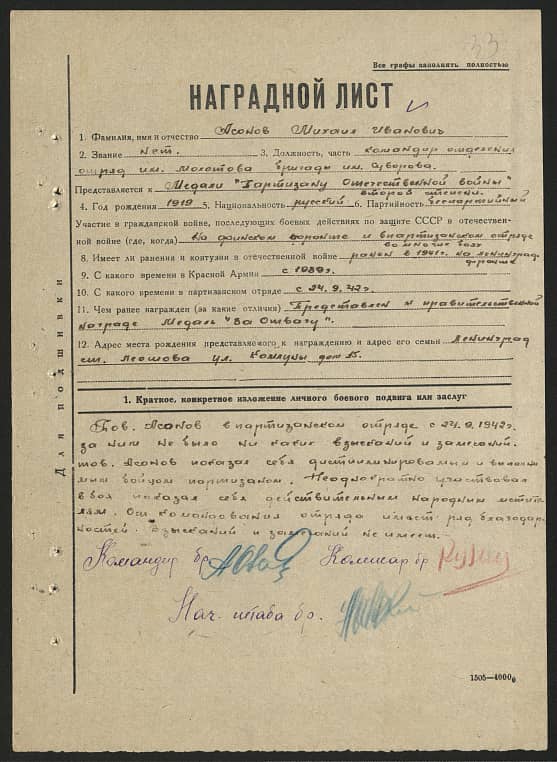 33
Все графы заполнять полностью
НАГРАДНОЙ ЛИСТ
1. Фамилия, имя и отчество Асонов Михаил Иванович
2. Звание нет. 3. Должность, часть командир отделения
отряд им. Молотова бригады им. Суворова.
Представляется к Медали "Партизану Отечественной войны"
второй степени.
4. Год рождения 1919 5. Национальность русский 6. Партийность беспартийный
Участие в гражданской войне, последующих боевых действиях по защите СССР в отечествен-
ной войне (где, когда) на финском фронте и в партизанском отряде
8. Имеет ли ранения и контузии в отечественной войне ранен в 1941г. на ленинград.
фронте
9. С какого времени в Красной Армии с 1939г.
10. С какого времени в партизанском отряде с 24.9.42г.
11. Чем ранее награжден (за какие отличия) Представлен к правительственной
награде Медаль "За Отвагу".
12. Адрес места рождения представляемого к награждению и адрес его семьи Ленинград
ст. ул. Коммуны дом
Для подшивки
1. Краткое, конкретное изложение личного боевого подвига или заслуг
Тов. Асонов в партизанском отряде с 24.9.1942г.
за ним не было ни каких взысканий и замечаний.
тов. Асонов показал себя дисциплинированным и
бойцом партизаном. Неоднократно участвовал
в боя показал себя действительным народным мстите
лям. От командования отряда имеет ряд благодар
ностей. Взысканий и замечаний не имеет.
Командир бр. Комиссар бр.
Нач. штаба бр.
1505—4000